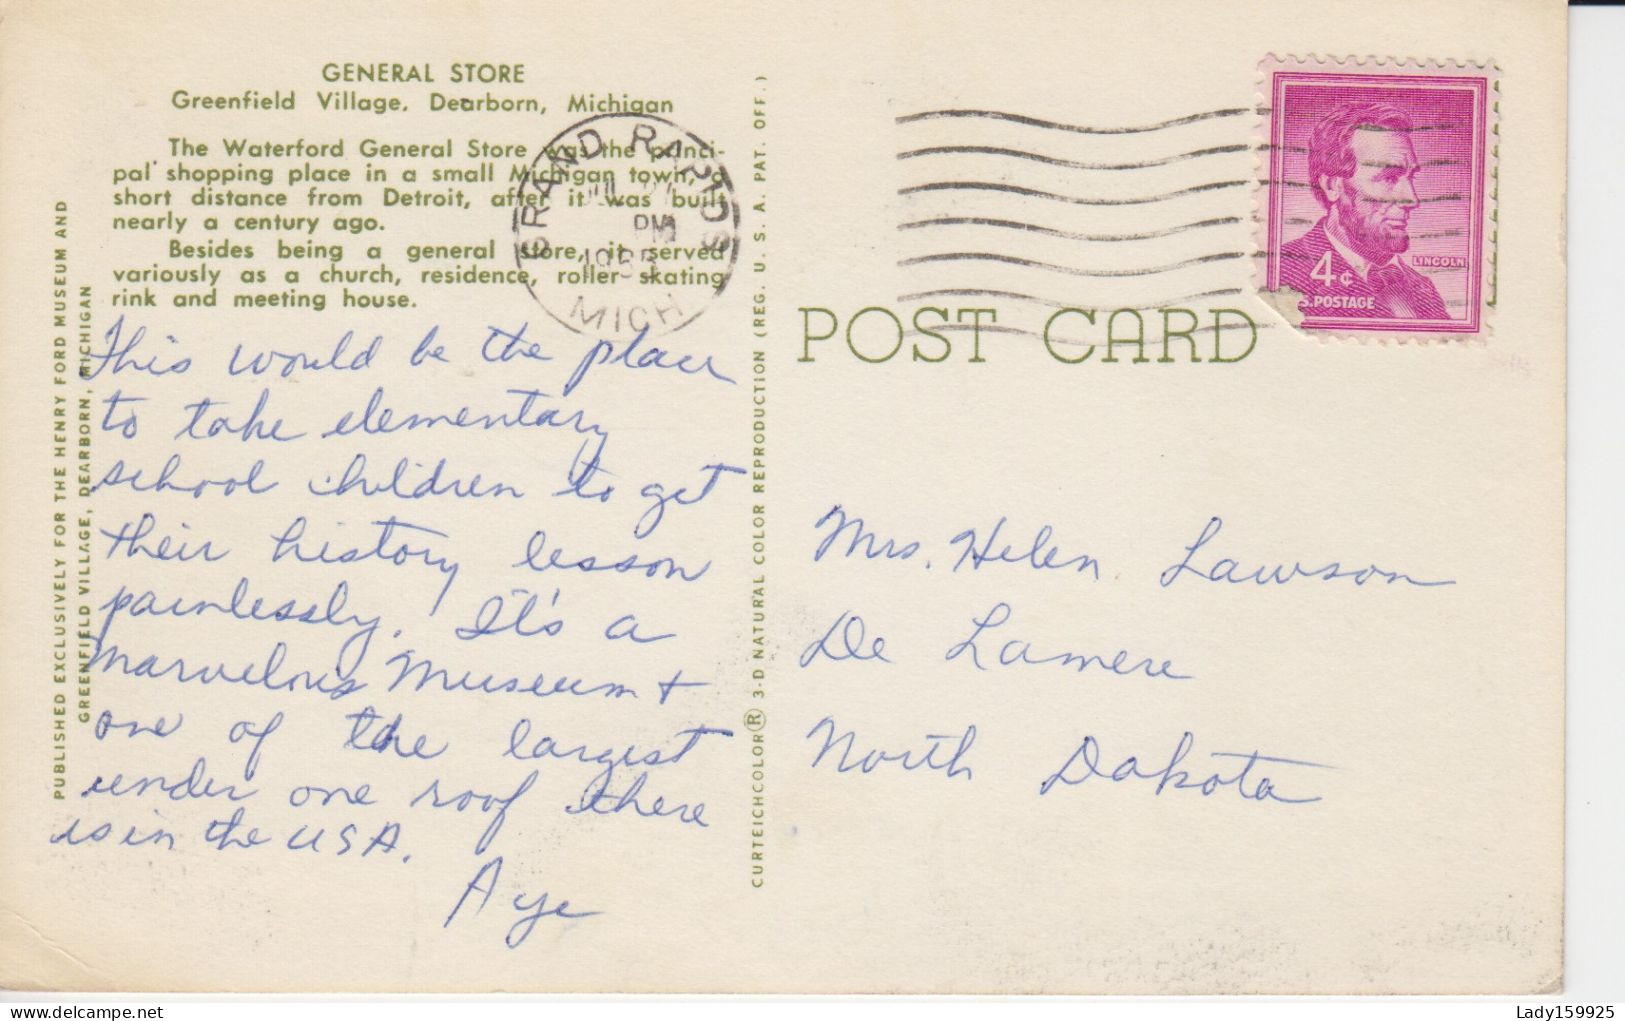 GENERAL STORE
Greenfield Village, Dearborn, Michigan
The Waterford General Store was the princi-
pal shopping place in a small Michigan town, a
short distance from Detroit, after it was built
nearly a century ago.
Besides being a general store, it served
variously as a church, residence, roller skating
rink and meeting house.
This would be the place
to take elementary
school children to get
their history lesson
painlessly. It's a
marvelous Museum +
one of the largest
under one roof there
is in the USA.
Aye
PUBLISHED EXCLUSIVELY FOR THE HENRY FORD MUSEUM AND
GREENFIELD VILLAGE, DEARBORN, MICHIGAN
GRAND RAPIDS
JUL
PM
MICH
CURTEICHCOLOR® 3-D NATURAL COLOR REPRODUCTION (REG. U. S. A. PAT. OFF.)
LINCOLN
4¢
S. POSTAGE
POST CARD
Mrs. Helen Lawson
De Lamere
North Dakota
Lady159925